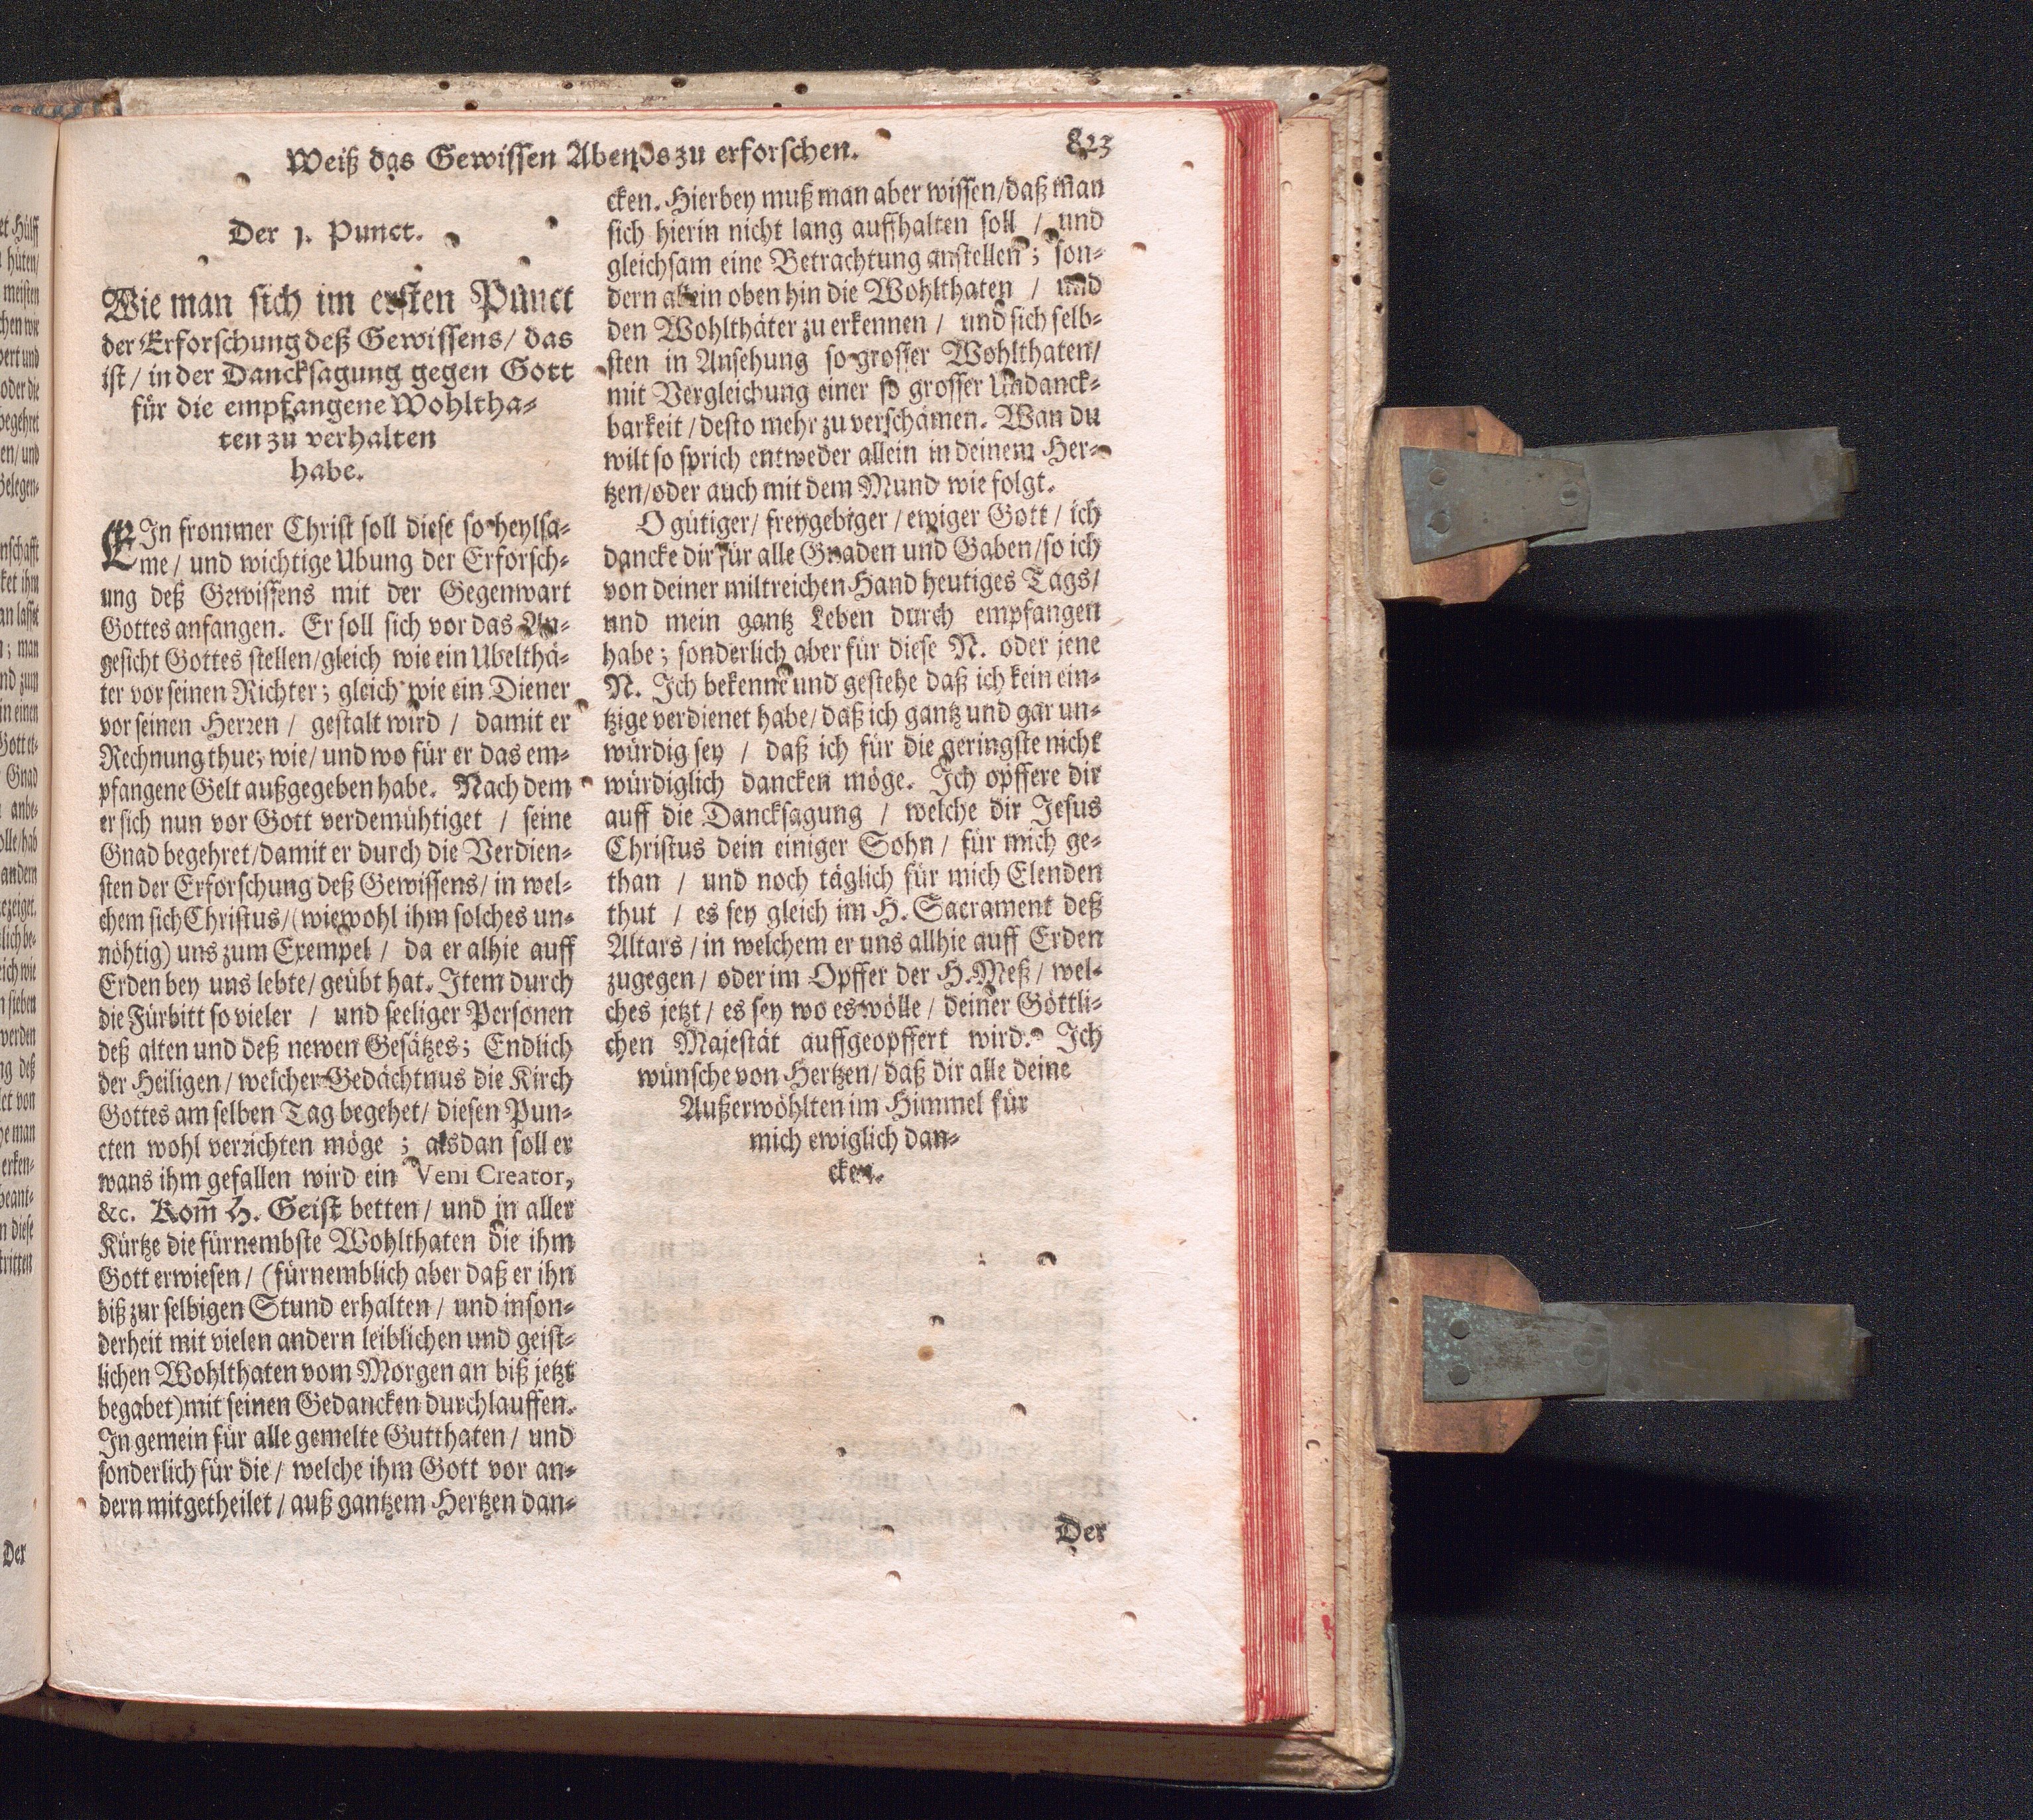 Weiß das Gewissen Abends zu erforschen.
823
Der 1. Punct.
Wie man sich im ersten Punct
der Erforschung deß Gewissens / das
ist / in der Dancksagung gegen Gott
für die empfangene Wohltha-
ten zu verhalten
habe.
EIn frommer Christ soll diese so heylsa-
me / und wichtige Ubung der Erforsch-
ung deß Gewissens mit der Gegenwart
Gottes anfangen. Er soll sich vor das An-
gesicht Gottes stellen / gleich wie ein Ubelthä-
ter vor seinen Richter; gleich wie ein Diener
vor seinen Herren / gestalt wird / damit er
Rechnung thue; wie / und wo für er das em-
pfangene Gelt außgegeben habe. Nach dem
er sich nun vor Gott verdemühtiget / seine
Gnad begehret / damit er durch die Verdien-
sten der Erforschung deß Gewissens / in wel-
chem sich Christus / (wiewohl ihm solches un-
nöhtig) uns zum Exempel / da er alhie auff
Erden bey uns lebte / geübt hat. Item durch
die Fürbitt so vieler / und seeliger Personen
deß alten und deß newen Gesätzes; Endlich
der Heiligen / welcher Gedächtnus die Kirch
Gottes am selben Tag begehet / diesen Pun-
cten wohl verrichten möge; alsdan soll er
wans ihm gefallen wird ein Veni Creator,
&c. Kom̄ H. Geist betten / und in aller
Kürtze die fürnembste Wohlthaten die ihm
Gott erwiesen / (fürnemblich aber daß er ihn
biß zur selbigen Stund erhalten / und inson-
derheit mit vielen andern leiblichen und geist-
lichen Wohlthaten vom Morgen an biß jetzt
begabet) mit seinen Gedancken durchlauffen.
In gemein für alle gemelte Gutthaten / und
sonderlich für die / welche ihm Gott vor an-
dern mitgetheilet / auß gantzem Hertzen dan-
cken. Hierbey muß man aber wissen / daß man
sich hierin nicht lang auffhalten soll / und
gleichsam eine Betrachtung anstellen; son-
dern allein oben hin die Wohlthaten / und
den Wohlthäter zu erkennen / und sich selb-
sten in Ansehung so grosser Wohlthaten /
mit Vergleichung einer so grosser Undanck-
barkeit / desto mehr zu verschämen. Wan du
wilt so sprich entweder allein in deinem Her-
tzen / oder auch mit dem Mund wie folgt.
O gütiger / freygebiger / ewiger Gott / ich
dancke dir für alle Gnaden und Gaben / so ich
von deiner miltreichen Hand heutiges Tags /
und mein gantz Leben durch empfangen
habe; sonderlich aber für diese N. oder jene
N. Ich bekenne und gestehe daß ich kein ein-
tzige verdienet habe / daß ich gantz und gar un-
würdig sey / daß ich für die geringste nicht
würdiglich dancken möge. Ich opffere dir
auff die Dancksagung / welche dir Jesus
Christus dein einiger Sohn / für mich ge-
than / und noch täglich für mich Elenden
thut / es sey gleich im H. Sacrament deß
Altars / in welchem er uns allhie auff Erden
zugegen / oder im Opffer der H. Meß / wel-
ches jetzt / es sey wo es wölle / deiner Göttli-
chen Majestät auffgeopffert wird. Ich
wünsche von Hertzen / daß dir alle deine
Außerwöhlten im Himmel für
mich ewiglich dan-
cken.
Der